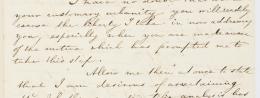 I have no doubt
your customary urbanity, you will really
excuse the liberty I take in now addressing
you, especially when you are made aware
of the motive which has prompted me to
take this step.
Allow me then at once to state
that I am desirous of ascertaining